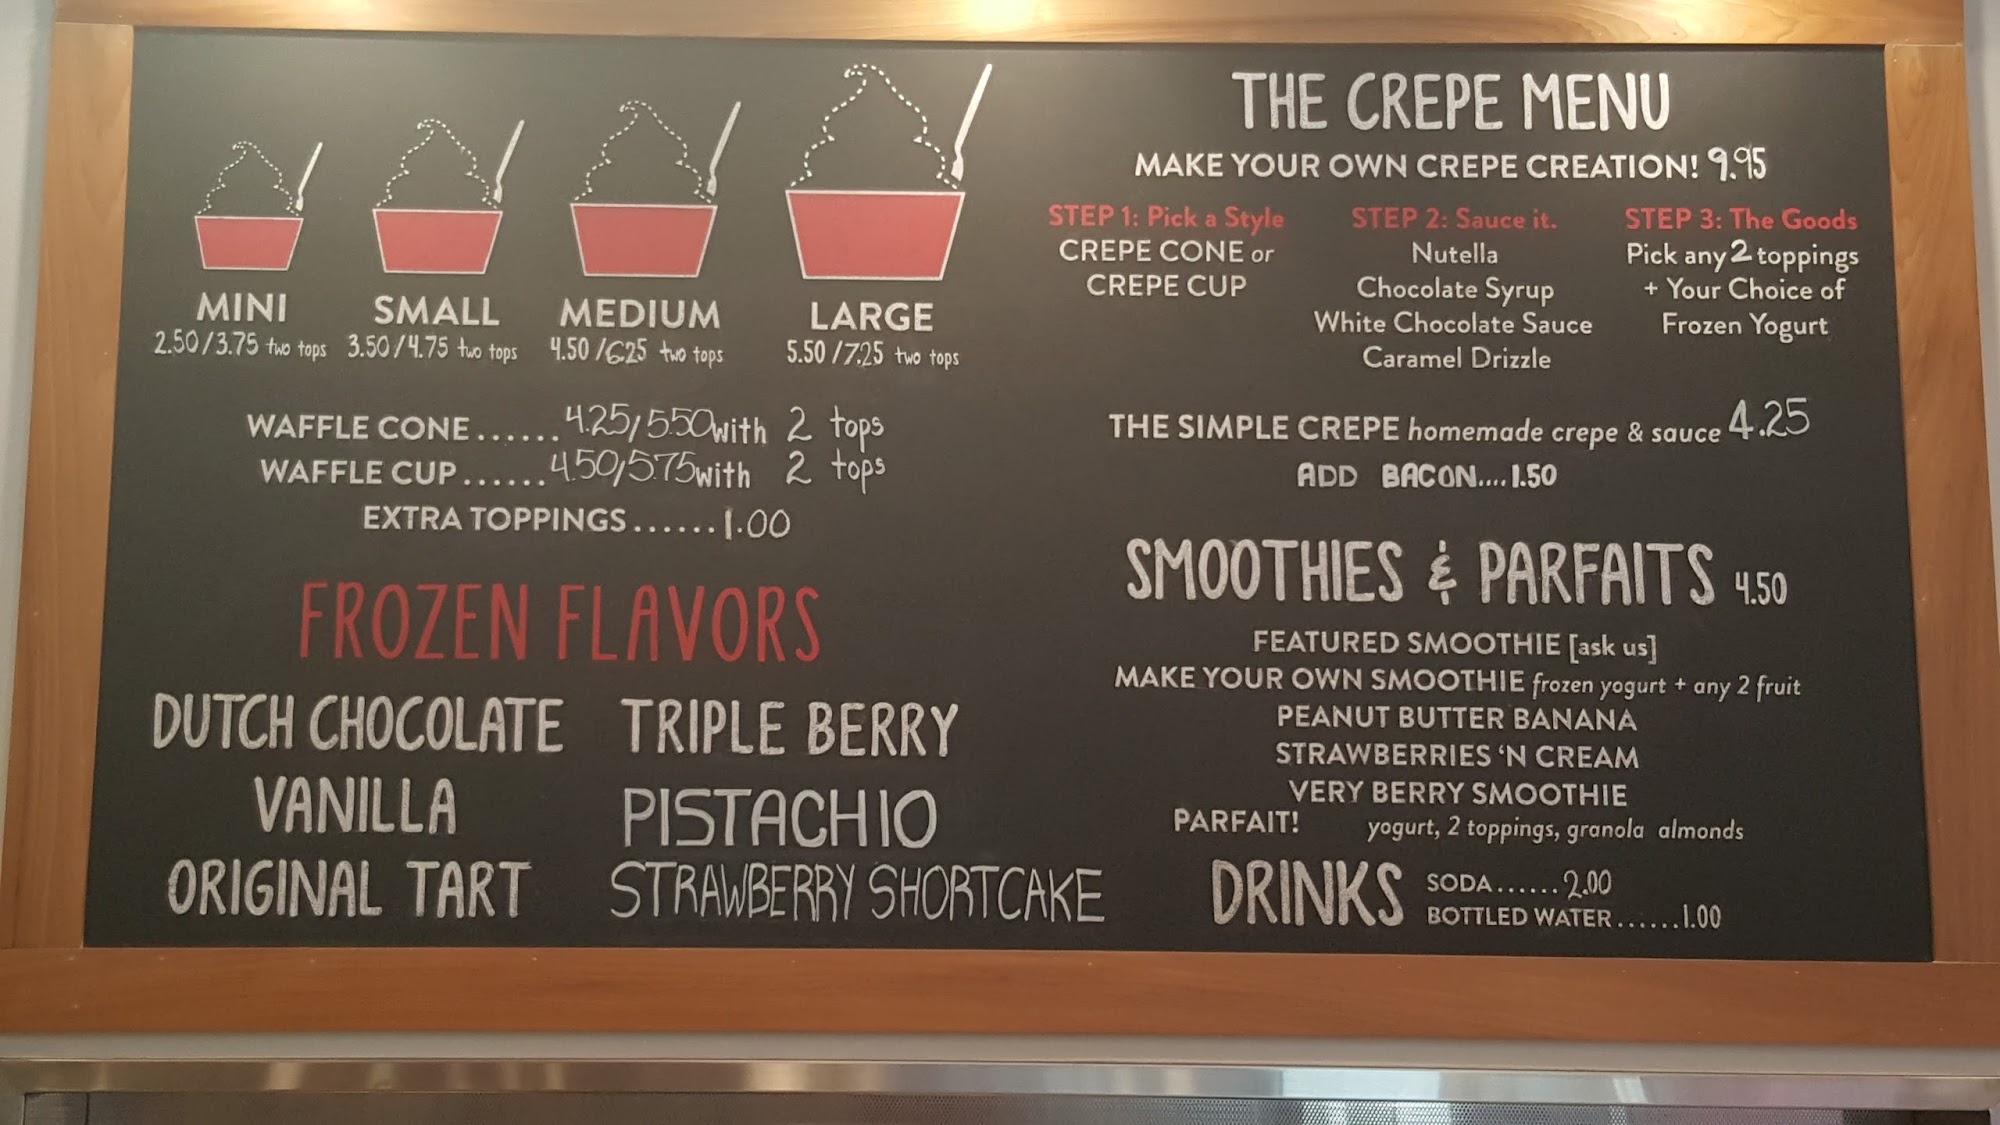 MINI
2.50/3.75 two tops
SMALL
3.50/4.75 two tops
MEDIUM
4.50/6.25 two tops
LARGE
5.50/7.25 two tops
WAFFLE CONE......4.25/5.50 with 2 tops
WAFFLE CUP......4.50/5.75 with 2 tops
EXTRA TOPPINGS......1.00
FROZEN FLAVORS
DUTCH CHOCOLATE
VANILLA
ORIGINAL TART
TRIPLE BERRY
PISTACHIO
STRAWBERRY SHORTCAKE
THE CREPE MENU
MAKE YOUR OWN CREPE CREATION! 9.95
STEP 1: Pick a Style
CREPE CONE or
CREPE CUP
STEP 2: Sauce it.
Nutella
Chocolate Syrup
White Chocolate Sauce
Caramel Drizzle
STEP 3: The Goods
Pick any 2 toppings
+ Your Choice of
Frozen Yogurt
THE SIMPLE CREPE homemade crepe & sauce 4.25
ADD BACON....1.50
SMOOTHIES & PARFAITS 4.50
FEATURED SMOOTHIE [ask us]
MAKE YOUR OWN SMOOTHIE frozen yogurt + any 2 fruit
PEANUT BUTTER BANANA
STRAWBERRIES ‘N CREAM
VERY BERRY SMOOTHIE
PARFAIT! yogurt, 2 toppings, granola almonds
DRINKS
SODA......2.00
BOTTLED WATER......1.00